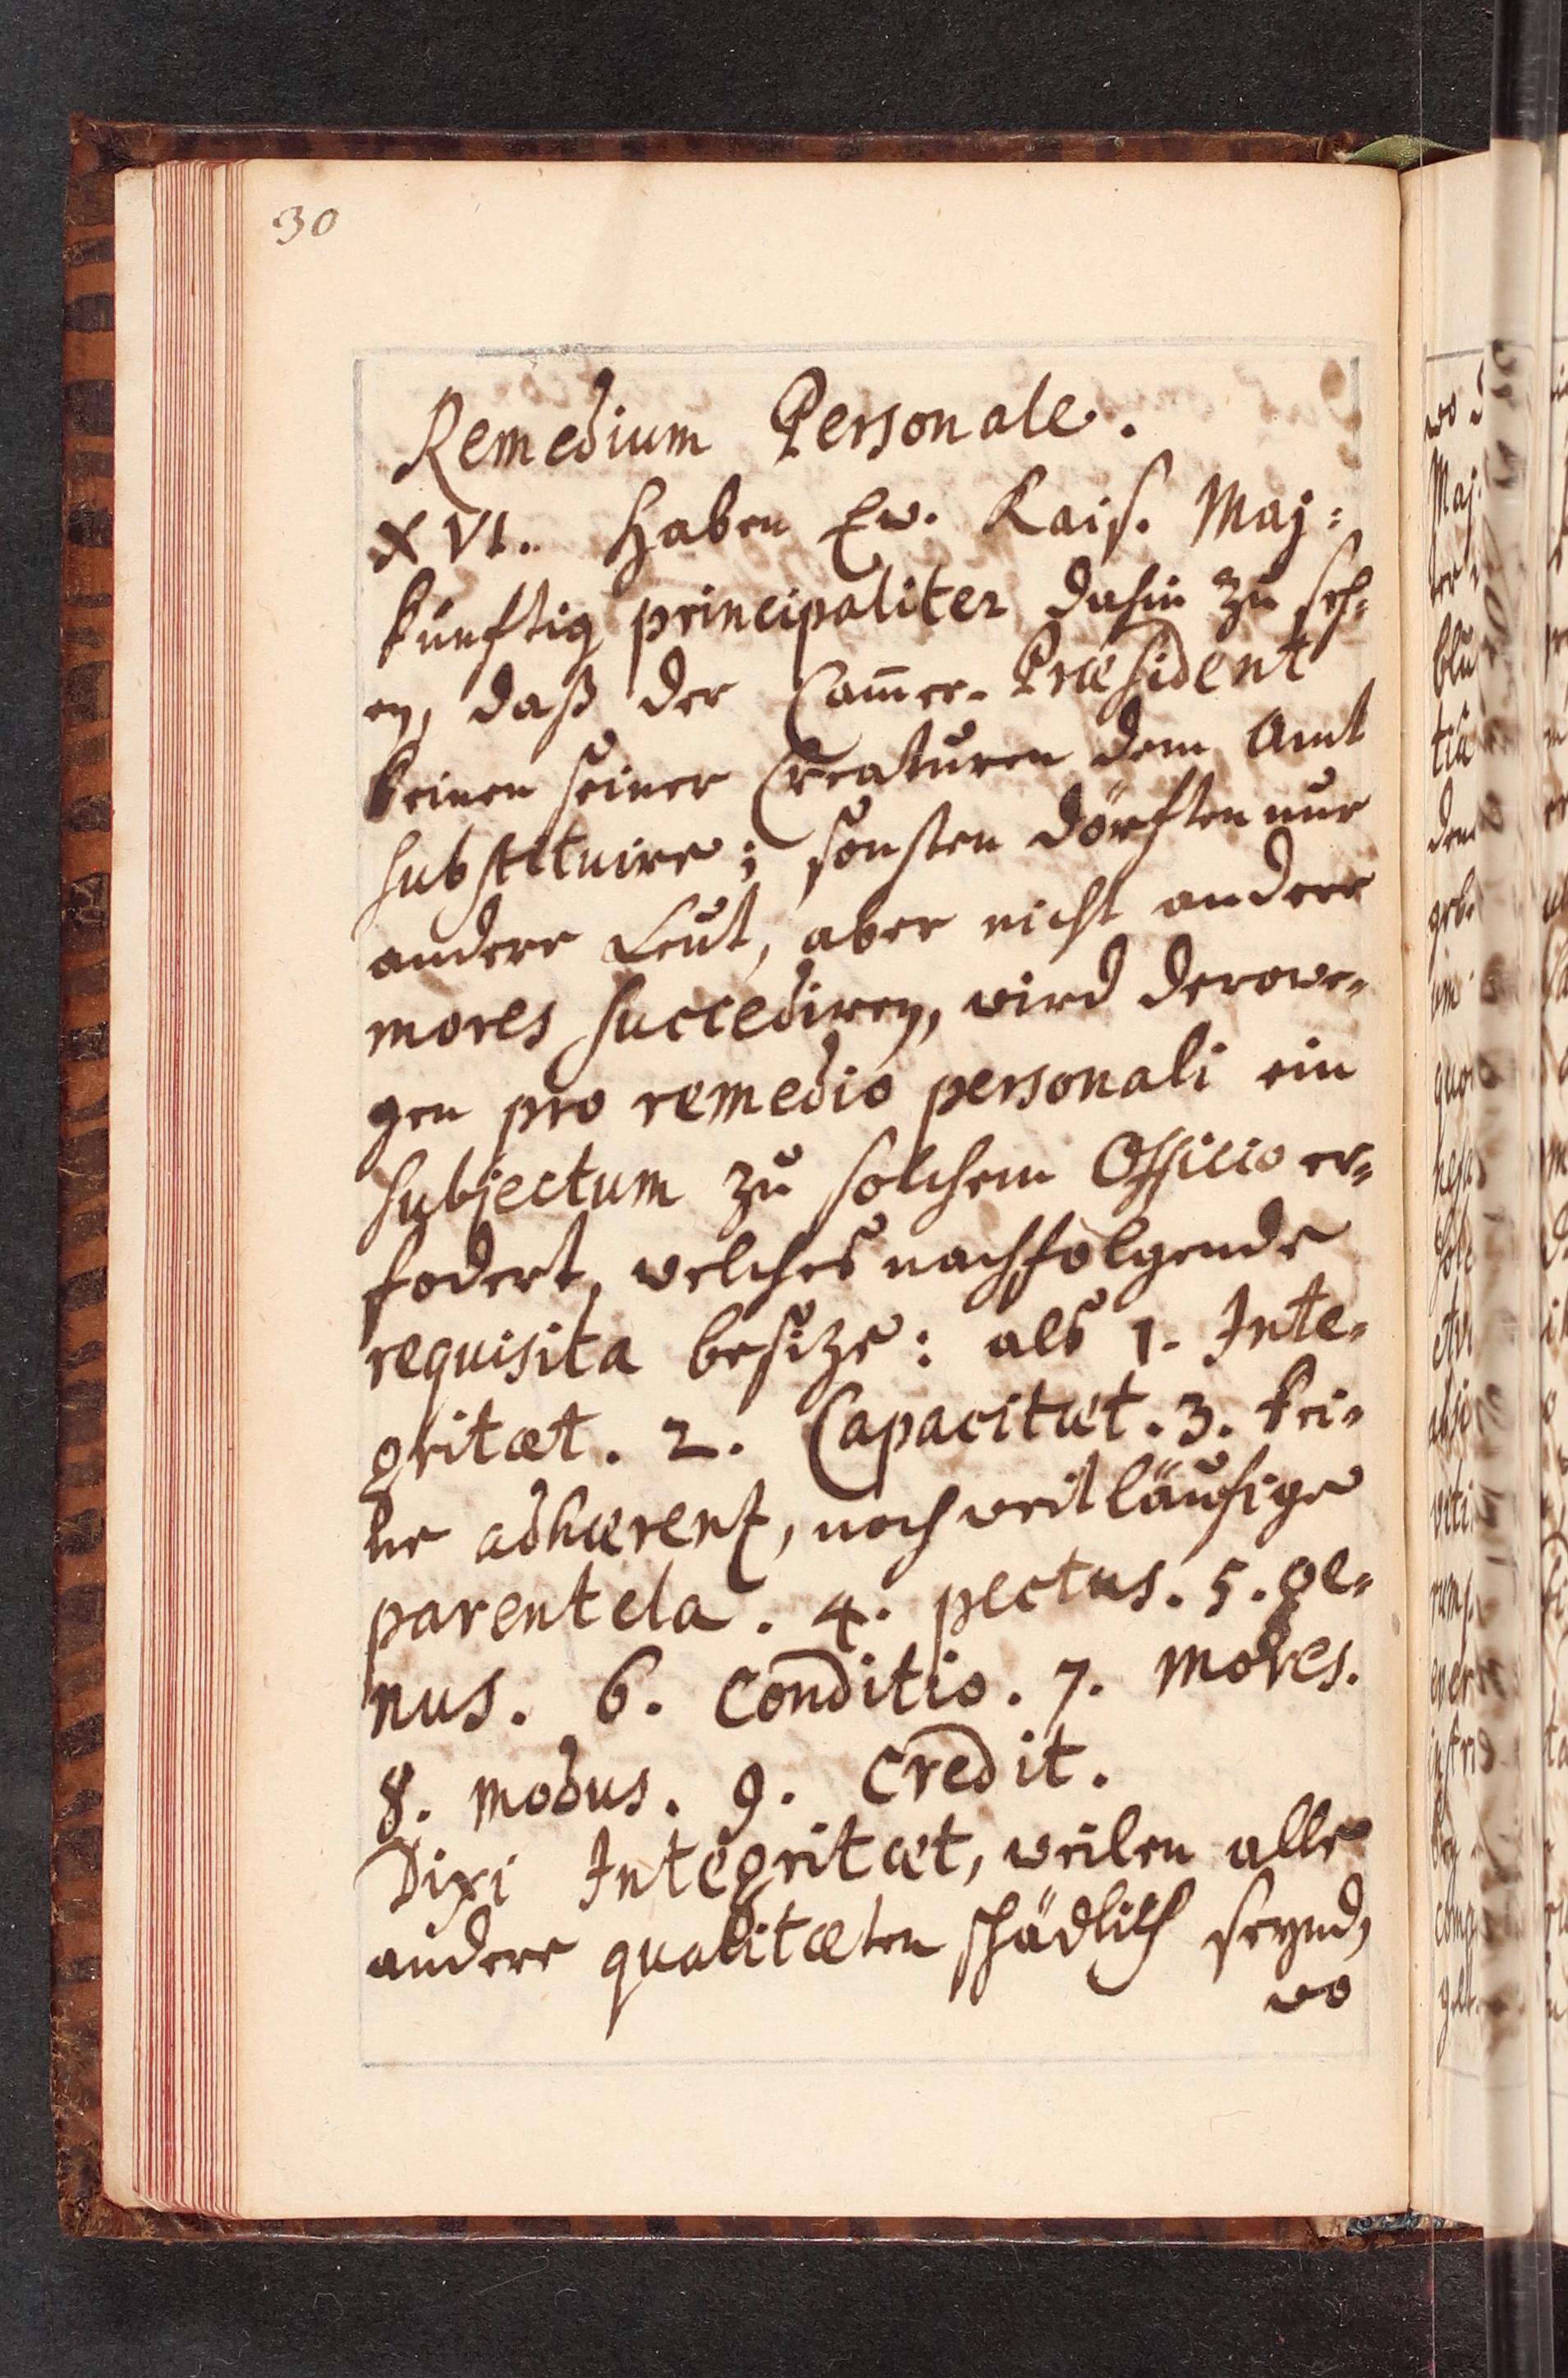 30
Remedium Personale.
XVI. Haben Ew. Kais. Maj:
künfftig principaliter dahin zu seh=
en, daß der Cam̄er-Præsident
keinen seiner Creaturen dem Amt
substituire; sonsten dörfften nur
andere Leut, aber nicht andere
mores succediren, wird derowe=
gen pro remedio personali ein
subjectum zu solchem Officio er=
fodert, welches nachfolgende
requisita besize: als 1. Inte=
gritæt. 2. Capacitæt. 3. kei=
ne adhærenz, noch weitläufige
parentela. 4. pectus. 5. ge=
nus. 6. Conditio. 7. mores.
8. modus. 9. Credit.
Dixi Integritæt, weilen alle
andere qualitæten schädlich seynd,
wo